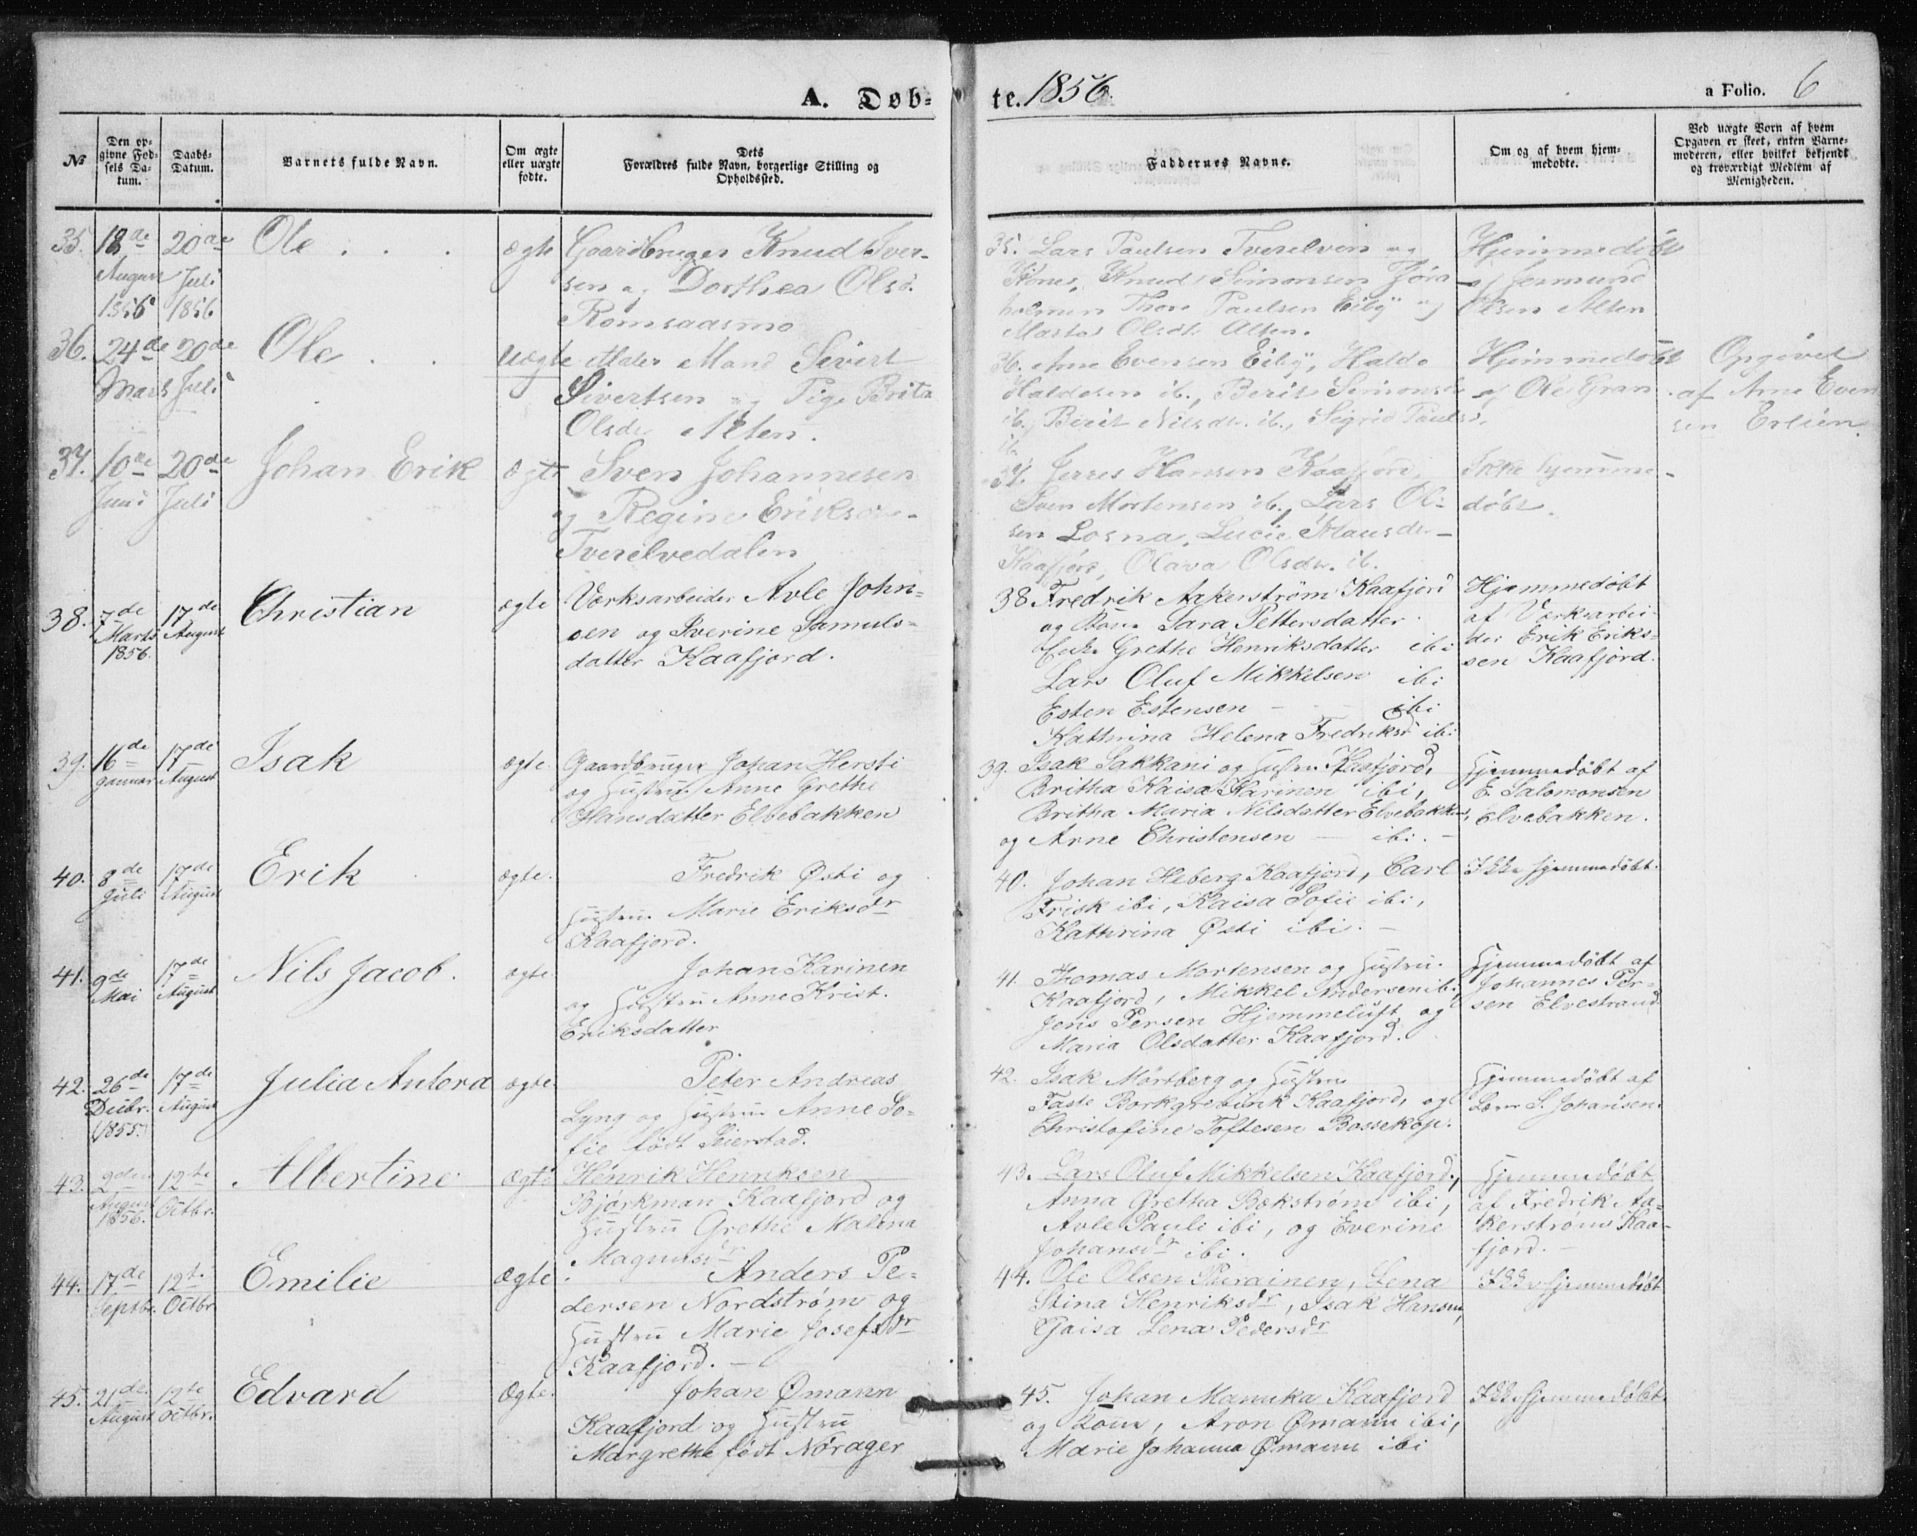 A. Døb-
te. 1856.
a Folio. 6
No
Den op-
givne Fød-
sels Da-
tum.
Daabs-
Datum.
Barnets fulde Navn.
Om ægte
eller uægte
fødte.
Dets
Forældres fulde Navn, borgerlige Stilling og
Opholdssted.
Faddernes Navne.
Om og af hvem hjem-
medøbte.
Ved uægte Børn af hvem
Opgaven er skeet, enten Barne-
moderen, eller hvilket bekjendt
og troværdigt Medlem af
Menigheden.
35. 18de August 1856 20de Juli 1856
Ole
ægte
Gaardbruger Knud Iver-
sen og Dorthea Olsd.
Romsaasmo
35. Lars Paulsen Tverelven og
Kone, Knud Simonsen Jøra-
holmen Thore Paulsen Eiby og
Olsdt. Alten.
Hjemmedøbt
af
Olsen Alten
36. 24de Marts 20de Juli
Ole
uægte
Mand Sivert
Sivertsen og Pige Brita
Olsdr. Alten.
36. Arne Evensen Eiby, Halde
Haldesen ib., Berit Simonsdr
ib., Berit Nilsdr. ib., Sigrid Paulsd.
ib.
Hjemmedøbt
af Ole Gran
Opgivet
af Arne Even
sen
37. 10de Juni 20de Juli
Johan Erik
Ægte
Sven Johannesen
og Regine Eriksdr.
Tverelvedalen
37. Hansen Kaafjord,
Sven Mortensen ib., Lars Ol-
sen Losna, Lucie Klausdr.
Kaafjord, Olava Olsdr. ib.
Ikke hjemme-
døbt.
38. 7de Marts 1856. 17de August
Christian
ægte
Værksarbeider Avle John-
sen og Iverine Samuls-
datter Kaafjord.
38 Fredrik Aakerstrøm Kaafjord
og Kone Sara Pettersdatter
Grethe Henriksdatter ibi
Lars Oluf Mikkelsen ibi
Esten Estensen - ibi
Kathrina Helena Fredriksd ibi
Hjemmedøbt
af Værksarbei-
der Erik Eriks-
sen Kaafjord.
39. 16de Januar 17de August
Isak
ægte.
Gaardbruger Johan Hersti
og Hustru Anne Grethe
Hansdatter Elbebakken
39. Isak Lakkani og Hustru Kaafjord,
Britha Kaisa Karinen ibi,
Britha Maria Nilsdatter Elvebakken,
og Arne Christensen - ibi. -
Hjemmedøbt af
E. Salomonsen
Elvebakken.
40. 8de Juli 17de August
Erik
ægte.
Fredrik Østi og
Hustru Marie Eriksdr
Kaafjord.
40. Johan Heberg Kaafjord, Carl
Frisk ibi, Kaisa Sofie ibi,
Kathrina Østi ibi. -
Ikke hjemmedøbt.
41. 9de Mai 17de August
Nils Jacob.
ægte
Johan Karinen
og Hustru Anne Krist.
Eriksdatter
41. Thomas Mortensen og Hustru
Kaafjord, Mikkel Andersen ibi
Jens Persen Hjemmeluft og
Maria Olsdatter Kaafjord.
Hjemmedøbt af
Johannes Per-
sen Elvestrand
42. 26de Decbr. 1855. 17de August
Julia Antora
ægte
Peter Andreas
Lyng og Hustru Anne So-
fie født Seierstad.
42. Isak Mørtberg og Hustru
Faste Borkgrevink Kaafjord, og
Christofine Toftesen Bossekop.
Hjemmedøbt af
S. Johansen.
43. 2den August 1856. 12te Octbr.
Albertine
Ægte
Henrik Henriksen
Bjørkman Kaafjord og
Hustru Grethe Malena
Magnusdr.
43. Lars Oluf Mikkelsen Kaafjord,
Anna Gretha Bækstrøm ibi,
Avle Pauli ibi, og Everine
Johansdr ibi.
Hjemmedøbt
af Fredrik Aa-
kerstrøm Kaa-
fjord. -
44. 17de Septbr. 12te Octbr.
Emilie
Ægte
Anders Pe-
dersen Nordstrøm og
Hustru Marie Josefsdr
Kaafjord. -
44. Ole Olsen Purainen, Lena
Stina Henriksdr, Isak Hansen,
Gaisa Lena Pedersdr
Ikke hjemmedøbt
45. 21de August 12te Octbr.
Edvard
Ægte.
Johan Ømann
Kaafjord og Hustru
Margrethe født Norager
45. Johan Mamuka Kaafjord
og Kone, Aron Ømann ibi,
Marie Johanna Ømann ibi
Ikke hjemmedøbt